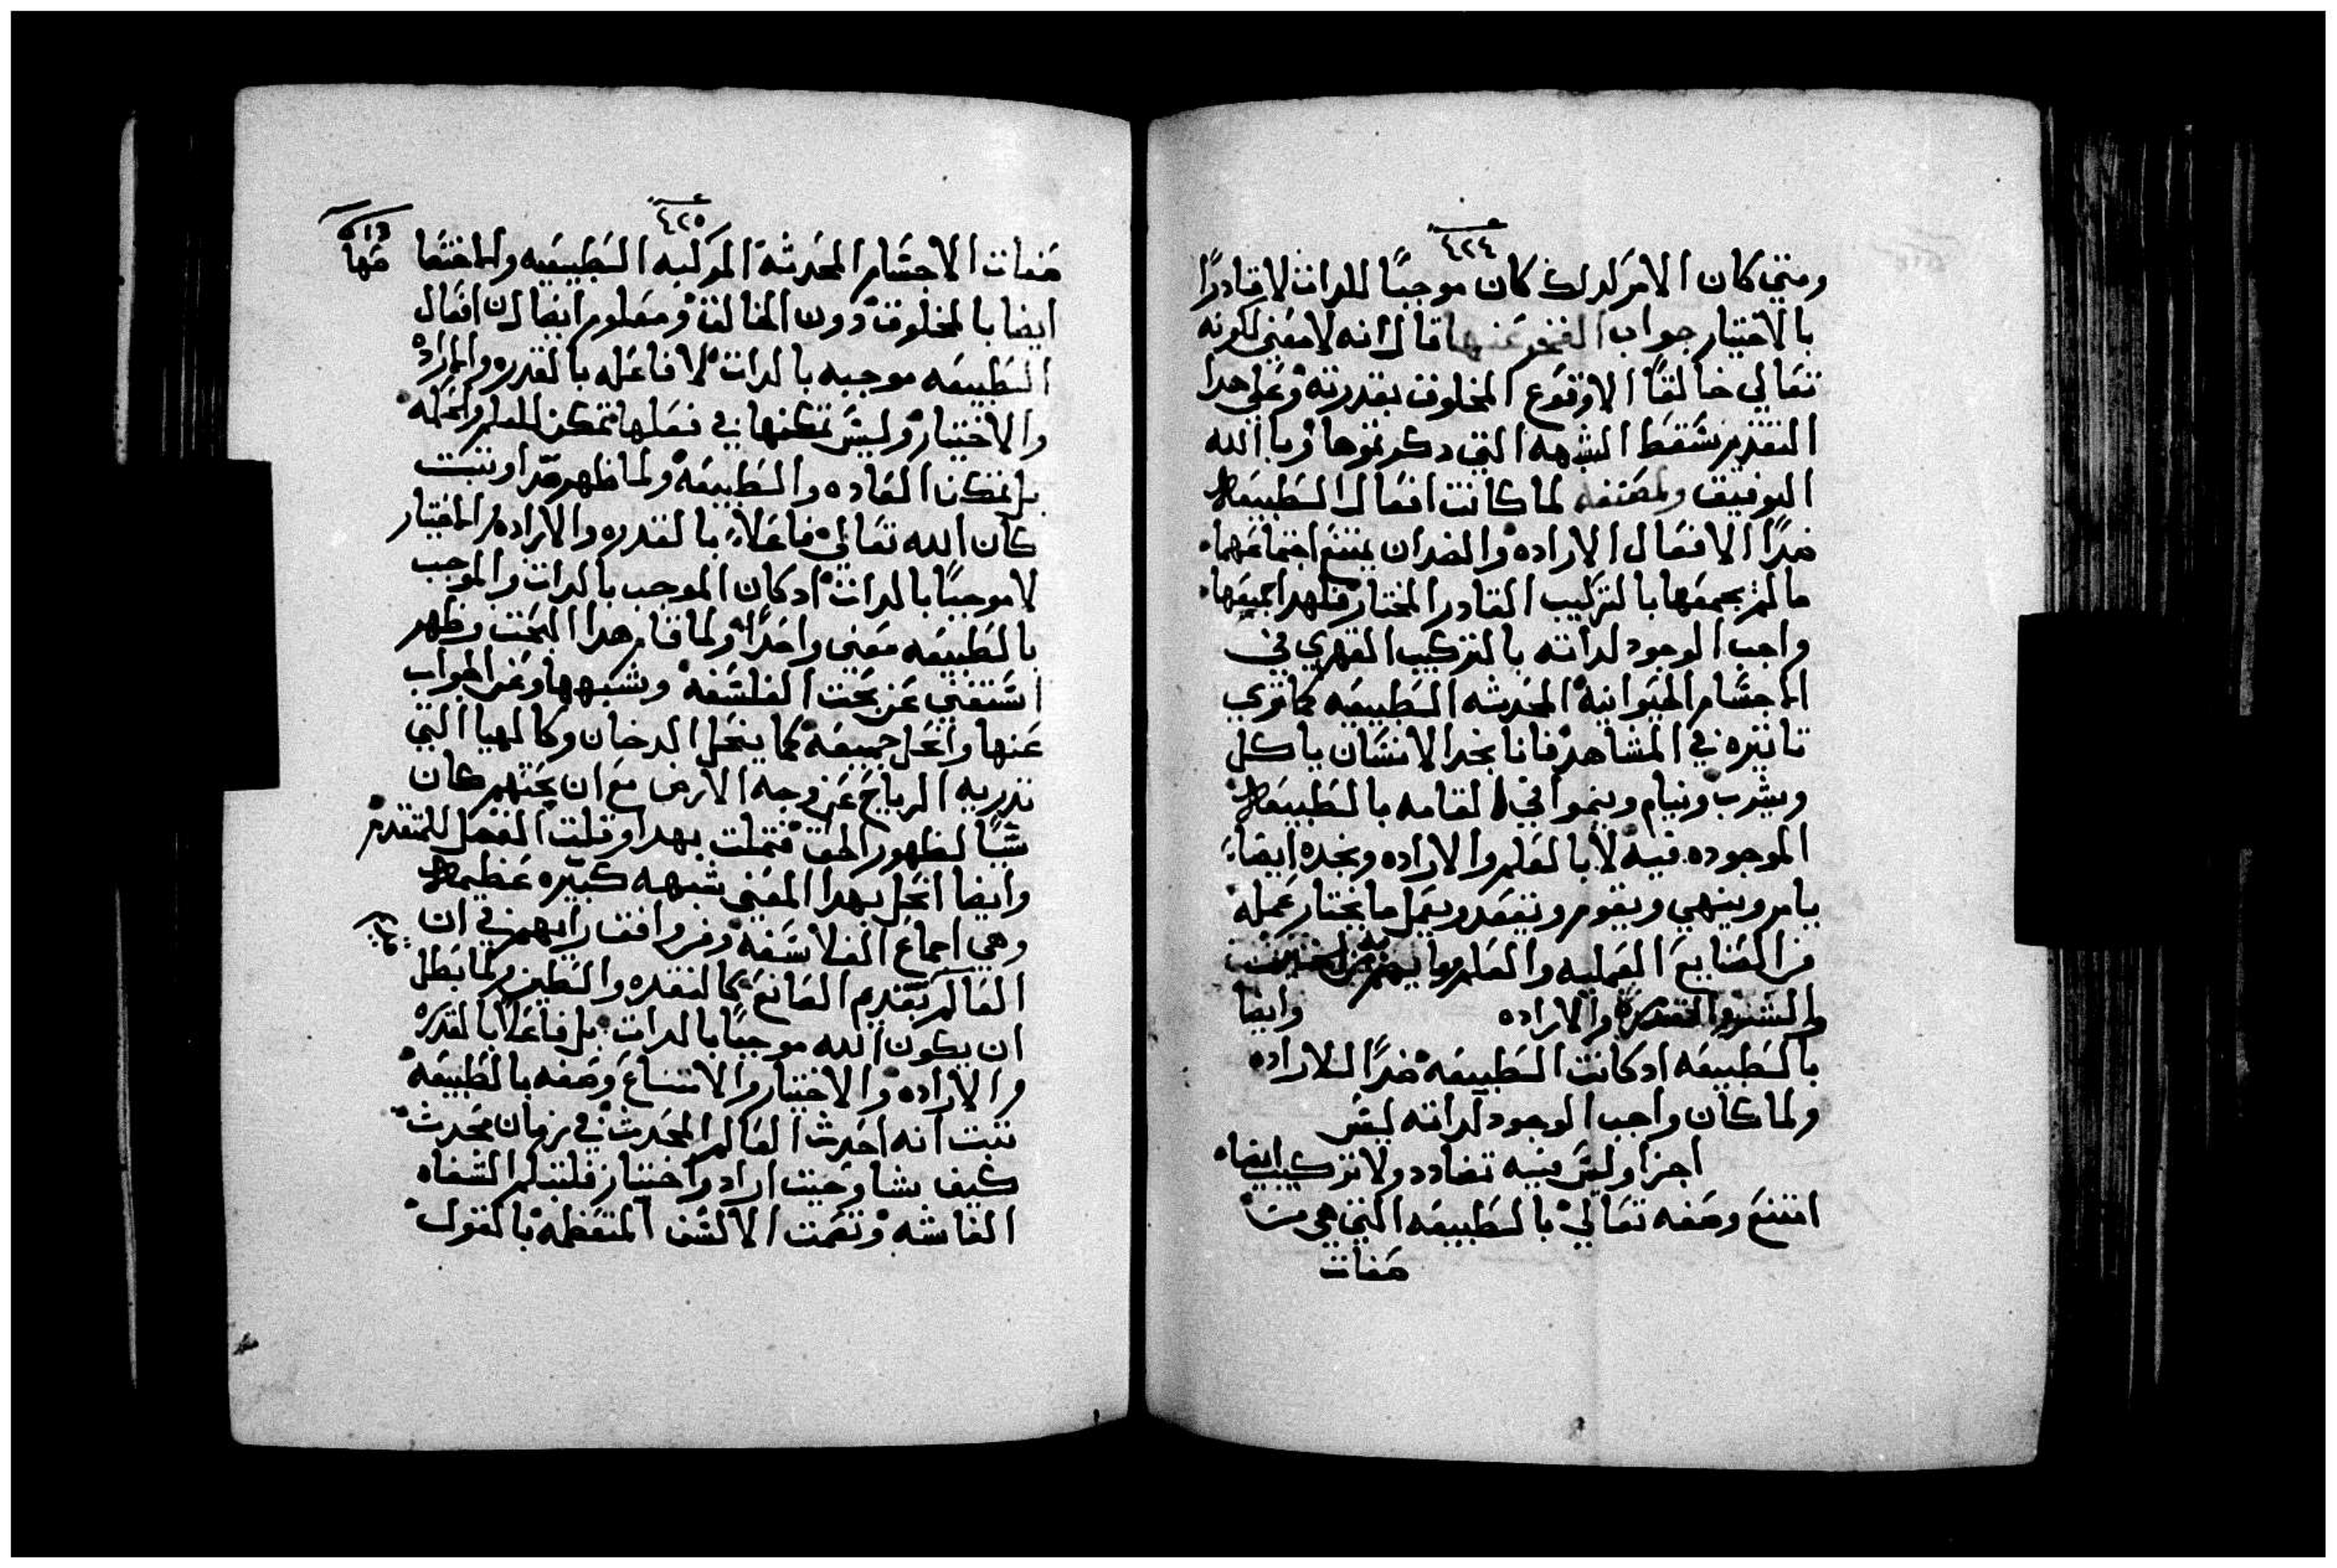 ٤٢٤
ومتي كان الامر كدلك كان موجبًا للدات لا قادرًا
بالاختيار جواب الفخر عنها قال انه لا معني لكونه
تعالي خالقًا الا وقوع المخلوق بقدرته وعلي هدا
التقدير تسقط الشبهه التي دكرتموها وبالله
التوفيق ولمصنفه لما كانت افعال الطبيعه
ضدًا لافعال الاراده والضدان يمتنع اجتماعهما
ما لم يجمعها بالتركيب القادر المختار فلهدا جميعها
واجب الوجود لداته بالتركيب القهري في
الاجسام الحيوانية المحدثه الطبيعيه كما نري
تاتيره في المشاهد فانا نجد الانسان ياكل
ويشرب وينام وينموا في القامه بالطبيعه
الموجوده فيه لا بالعلم والاراده ونجده ايضا
يامر وينهي ويقوم ويقعد ويعمل ما يختار عمله
من الصنايع العمليه والعلم
والاراده وايضا
بالطبيعه ادكانت الطبيعه ضدًا للاراده
ولما كان واجب الوجود لداته ليس
اجزا وليس فيه تضادد ولا تركيب ايضا
امتنع وصفه تعالي بالطبيعه التي هي من
صفات
٤٢٥
صفات الاجسام المحدثة المركبه الطبيعيه والاختصا
صها
ايضا بالمخلوق دون الخالق ومعلوم ايضا ان افعال
الطبيعه موجبه بالدات لا فاعله بالقدره والاراده
والاختيار وليس تمكنها في فعلها تمكن العلم والحكمه
بل تمكن العاده والطبيعه ولما ظهر هدا وتبت
كان الله تعالي فاعلاً بالقدره والاراده والاختيار
لا موجبًا بالدات ادكان الموجب بالدات والموجب
بالطبيعه معني واحدًا ولما قام هدا البحت وظهر
استغني عن بحت الفلسفه وشبهها وعن الجواب
عنها وانحل جميعه كما ينحل الدخان وكالهبا التي
تدريه الرياح عن وجه الارض مع ان بحتهم كان
سببًا لظهور الحق فتمتلت بهدا وقلت الفضل للمتقدم
وايضا انحل بهدا المعني شبهه كبيره عظيمه
وهي اجماع الفلاسفه ومن وافق رايهم في ان
العالم بقدم الصانع كالنقده والطين ولما بطل
ان يكون الله موجبًا بالدات بل فاعلاً بالقدره
والاراده والاختيار والامتناع وصفه بالطبيعه
تبت انه احدث العالم المحدث في زمان محدث
كيف يشا وحيت اراد واختار فلتبلم الشفاه
الغاشه وتصمت الالسن المتعظمه بالقول